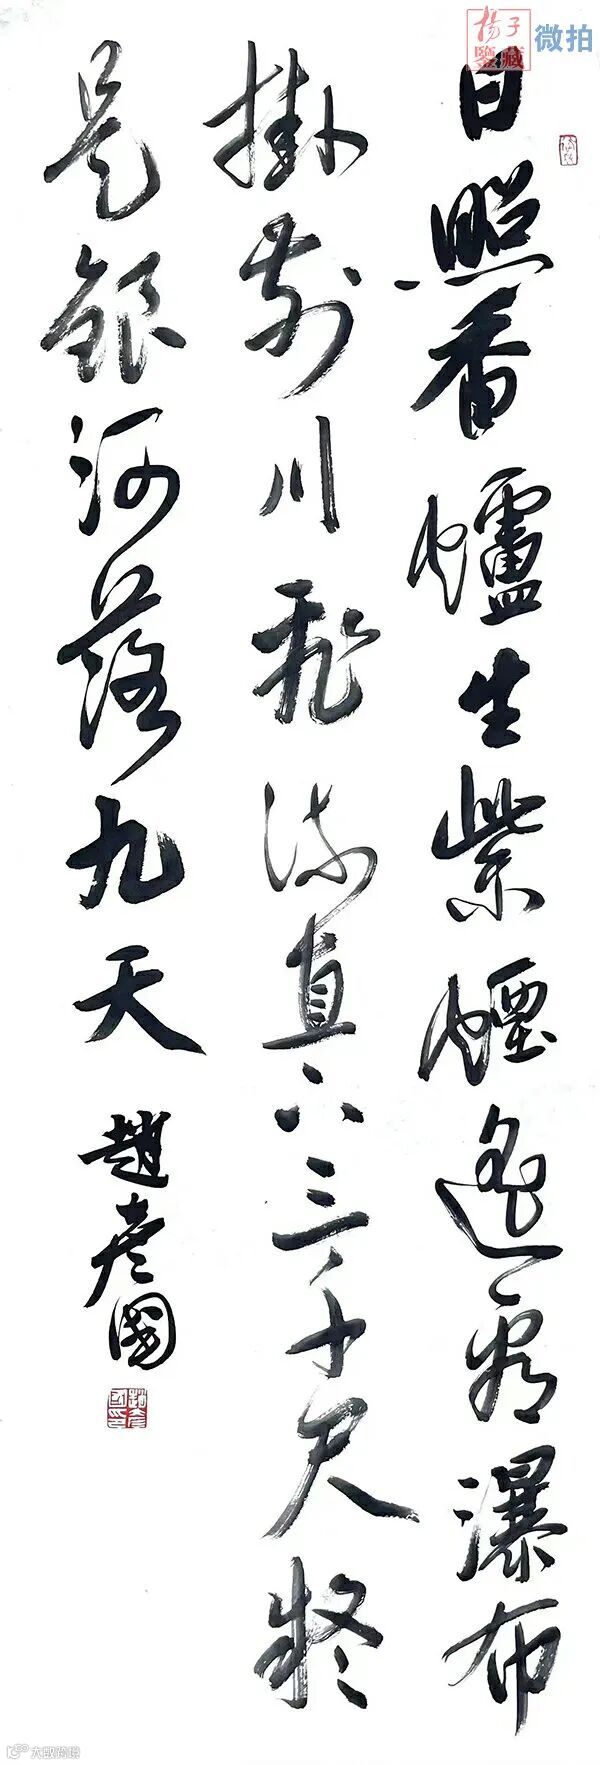 楊子
鑒藏
微拍
日照香爐生紫煙遙看瀑布
掛前川飛流直下三千尺疑
是銀河落九天
趙彥國
大数跨境